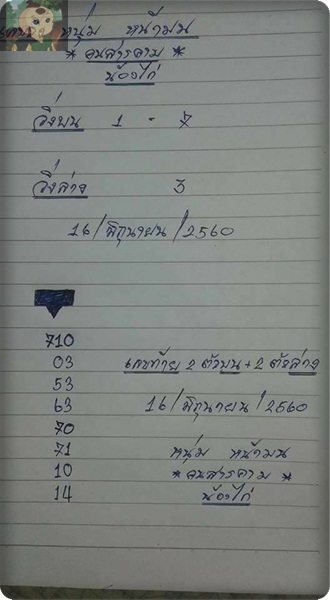 หนุ่ม หน้ามน
* คนสารคาม *
น้องไก่
วิ่งบน 1 - 7
วิ่งล่าง 3
16/มิถุนายน/2560
710
03 เลขท้าย 2 ตัวบน + 2 ตัวล่าง
53
63 16/มิถุนายน/2560
70
71 หนุ่ม หน้ามน
10 * คนสารคาม *
14 น้องไก่